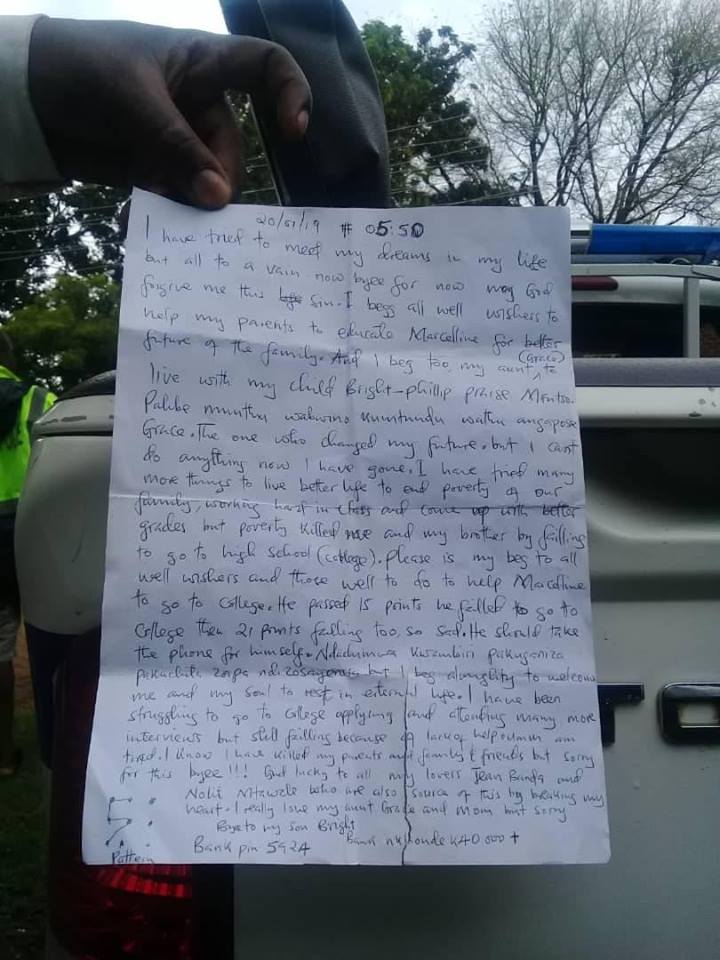 20/01/19 # 05:50
I have tried to meet my dreams in my life
but all to a vain now byee for now may God
forgive me this sin. I begg all well wishers to
help my parents to educate Marcelline for better
future of the family. And I beg too, my aunt (Grace) to
live with my child Bright-phillip praise Mentso.
Palibe munthu walwino kumtundu wathu angapose
Grace. The one who changed my future. but I can't
do anything now I have gone. I have tried many
more things to live better life to end poverty of our
family, working hard in class and come up with better
grades but poverty killed me and my brother by failling
to go to high school (college). please is my beg to all
well wishers and those well to do to help Marcelline
to go to College. He passed 15 points he failed to go to
College then 21 points failing too, so sad. He should take
the phone for himself. Ndadumwa kwambiri pakuganiza
pakuchita zoipa ndizosayenera but I beg almighty to welcome
me and my soul to rest in external life. I have been
struggling to go to College applying and attending many more
interviews but still failling because of lack of help umm am
tired. I know I have killed my parents and family & friends but sorry
for this byee!!! God lucky to all my lovers Jean Banda and
Noki Mtawale who are also source of this by breaking my
heart. I really love my aunt Grace and mom but sorry
Bye to my son Bright
Pattern
Bank pin 5924 Bank nkhonde K40 000 +
T